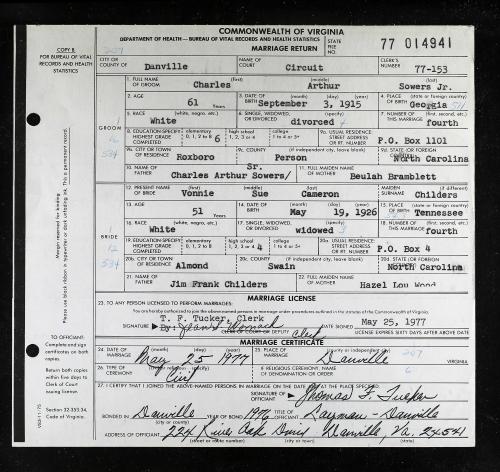 COMMONWEALTH OF VIRGINIA
DEPARTMENT OF HEALTH—BUREAU OF VITAL RECORDS AND HEALTH STATISTICS
MARRIAGE RETURN
STATE FILE NO. 77 014941
COPY B
FOR BUREAU OF VITAL RECORDS AND HEALTH STATISTICS
207
CITY OR COUNTY OF Danville
NAME OF COURT Circuit
CLERK'S NUMBER 77-153
GROOM
1. FULL NAME OF GROOM (first) Charles (middle) Arthur (last) Sowers Jr.
2. AGE 61 Years
3. DATE OF BIRTH (month) September (day) 3, (year) 1915
4. PLACE OF BIRTH (state or foreign country) Georgia
5. RACE (white, negro, etc.) White
6. SINGLE, WIDOWED, OR DIVORCED divorced
7. NUMBER OF THIS MARRIAGE (first, second, etc.) fourth
8. EDUCATION elementary 0, 1, 2 to 8 6 high school 1, 2, 3 or 4 college 1-4 or 5+
9a. USUAL RESIDENCE: STREET ADDRESS OR RT. NUMBER P.O. Box 1101
9b. CITY OR TOWN OF RESIDENCE Roxboro
9c. COUNTY (if independent city, leave blank) Person
9d. STATE OR FOREIGN COUNTRY North Carolina
10. FULL NAME OF FATHER Charles Arthur Sowers/ Sr.
11. FULL MAIDEN NAME OF MOTHER Beulah Bramblett
BRIDE
12. PRESENT NAME OF BRIDE (first) Vonnie (middle) Sue (last) Cameron
MAIDEN SURNAME (if different) Childers
13. AGE 51 Years
14. DATE OF BIRTH (month) May (day) 19, (year) 1926
15. PLACE OF BIRTH (state or foreign country) Tennessee
16. RACE (white, negro, etc.) White
17. SINGLE, WIDOWED, OR DIVORCED widowed
18. NUMBER OF THIS MARRIAGE (first, second, etc.) fourth
19. EDUCATION elementary 0, 1, 2 to 8 high school 1, 2, 3 or 4 4 college 1-4 or 5+
20a. USUAL RESIDENCE: STREET ADDRESS OR RT. NUMBER P.O. Box 4
20b. CITY OR TOWN OF RESIDENCE Almond
20c. COUNTY (if independent city, leave blank) Swain
20d. STATE OR FOREIGN COUNTRY North Carolina
21. FULL NAME OF FATHER Jim Frank Childers
22. FULL MAIDEN NAME OF MOTHER Hazel Lou Wood
MARRIAGE LICENSE
23. TO ANY PERSON LICENSED TO PERFORM MARRIAGES:
T. F. Tucker, Clerk
SIGNATURE By: Jean S. Womack
CLERK OF COURT OR DEPUTY clerk
DATE SIGNED May 25, 1977
LICENSE EXPIRES SIXTY DAYS AFTER ABOVE DATE
MARRIAGE CERTIFICATE
24. DATE OF MARRIAGE May 25 1977
25. PLACE OF MARRIAGE Danville VIRGINIA
26. TYPE OF CEREMONY Civil
IF RELIGIOUS CEREMONY, NAME OF DENOMINATION OR ORDER
27. I CERTIFY THAT I JOINED THE ABOVE-NAMED PERSONS IN MARRIAGE ON THE DATE AT THE PLACE SPECIFIED
SIGNATURE Thomas F. Tucker
BONDED IN Danville YEAR OF BOND 1976 TITLE OF OFFICIANT Layman - Danville
ADDRESS OF OFFICIANT 224 River Oak Drive Danville, Va. 24541
Margin reserved for binding
PLEASE USE BLACK RIBBON in typewriter or dark unfading ink. This is a permanent record.
TO OFFICIANT:
Complete and sign certificates on both copies.
Return both copies within five days to Clerk of Court issuing license.
Section 32-353.34, Code of Virginia.